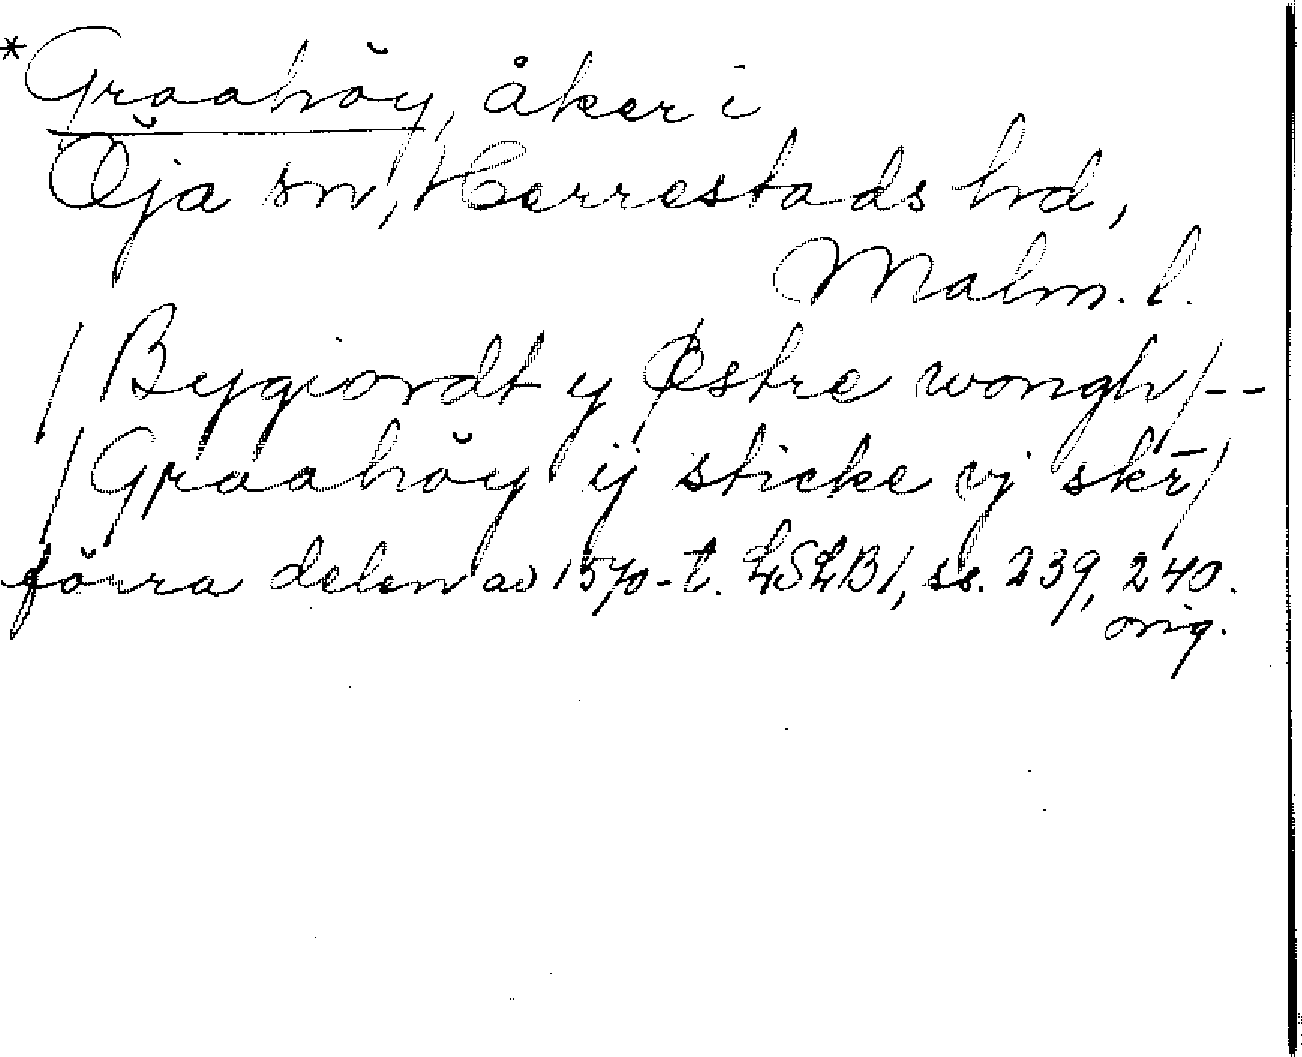 *Graahöy, åker i
Öja sn, Herrestads hd,
Malm. l.
/ Bygiordt y Østre wongh / --
/ Graahöy ij sticke vj skr̄ /
förra delen av 1570-t. LSLB1, ss. 239, 240.
orig.